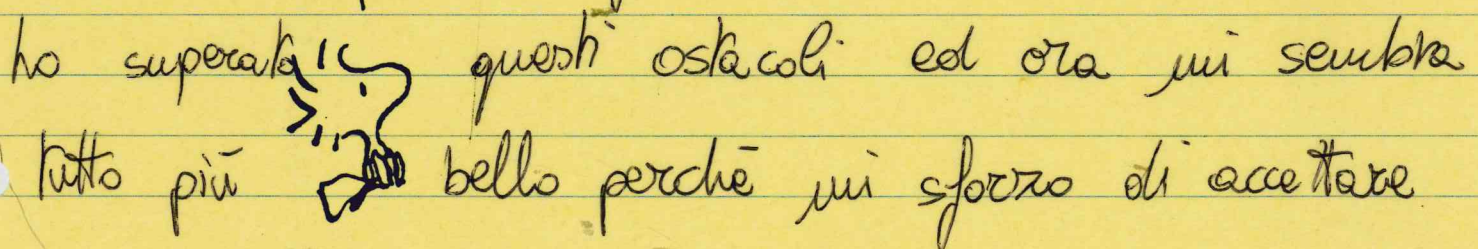 ho superato questi ostacoli ed ora mi sembra
tutto più bello perchè mi sforzo di accettare